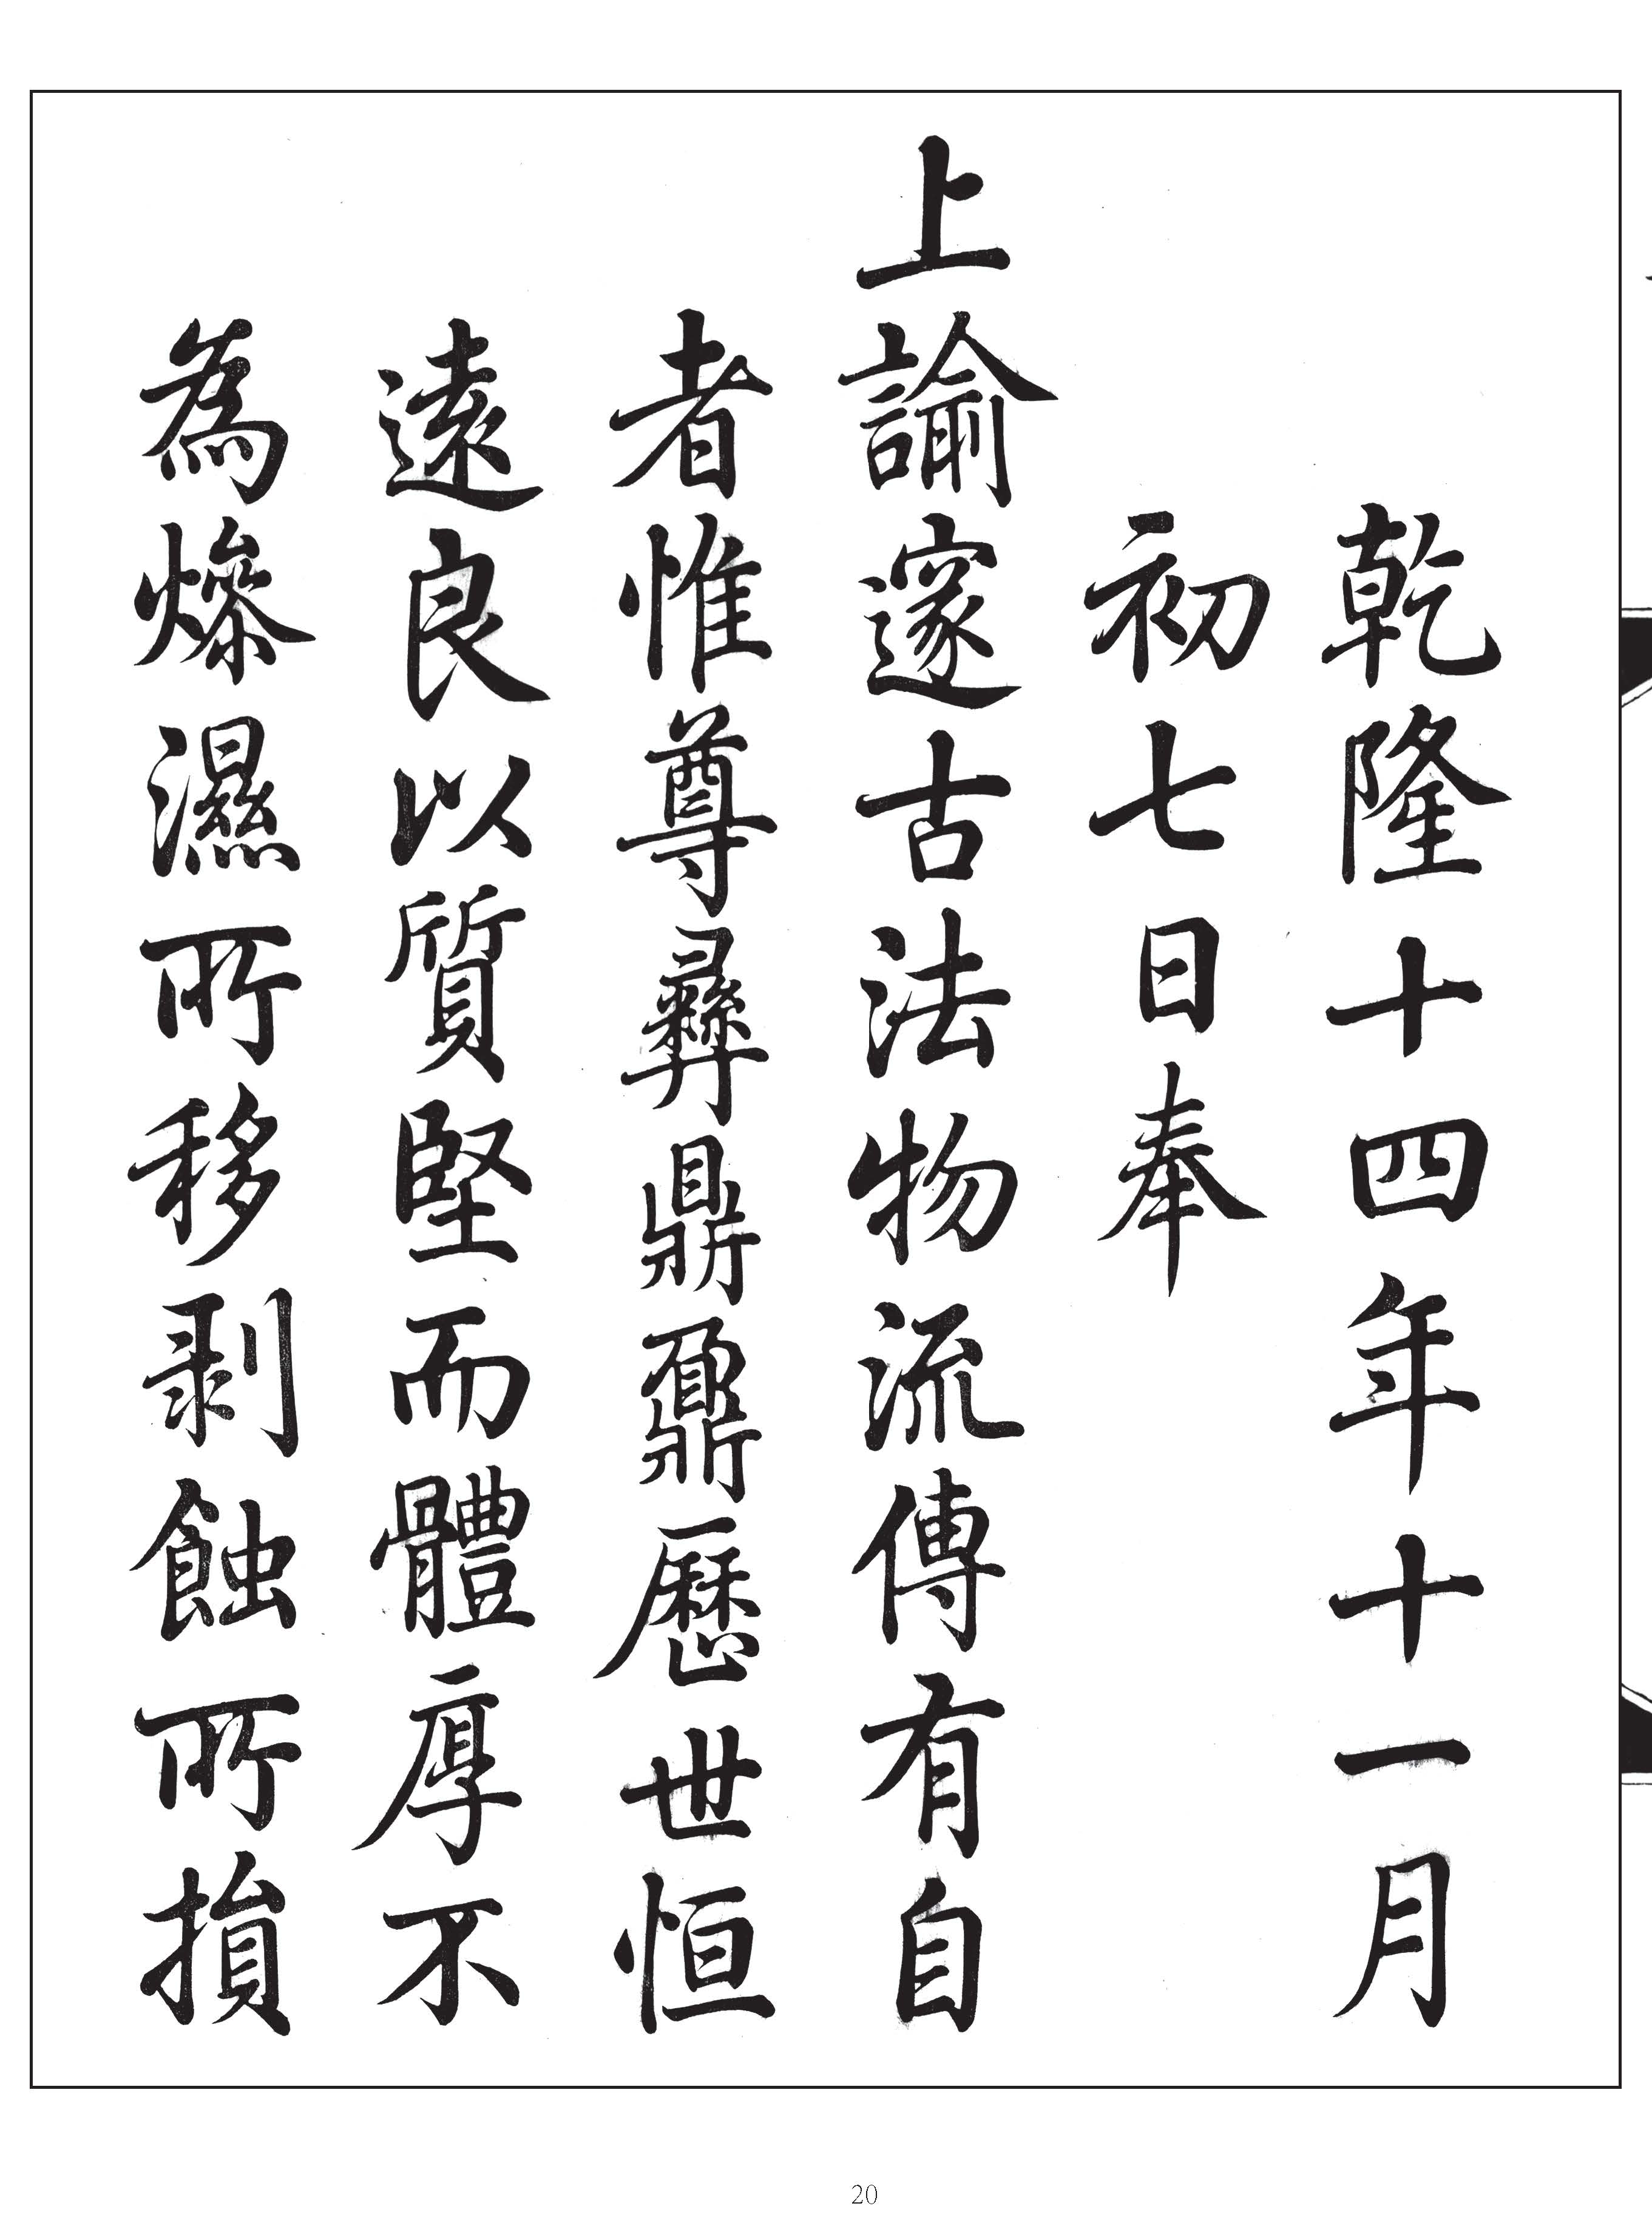 乾隆十四年十一月
初七日奉
上諭邃古法物流傳有自
者惟尊彝鼎鼐歷世恒
遠良以質堅而體厚不
為燥濕所移剥蝕所損
20